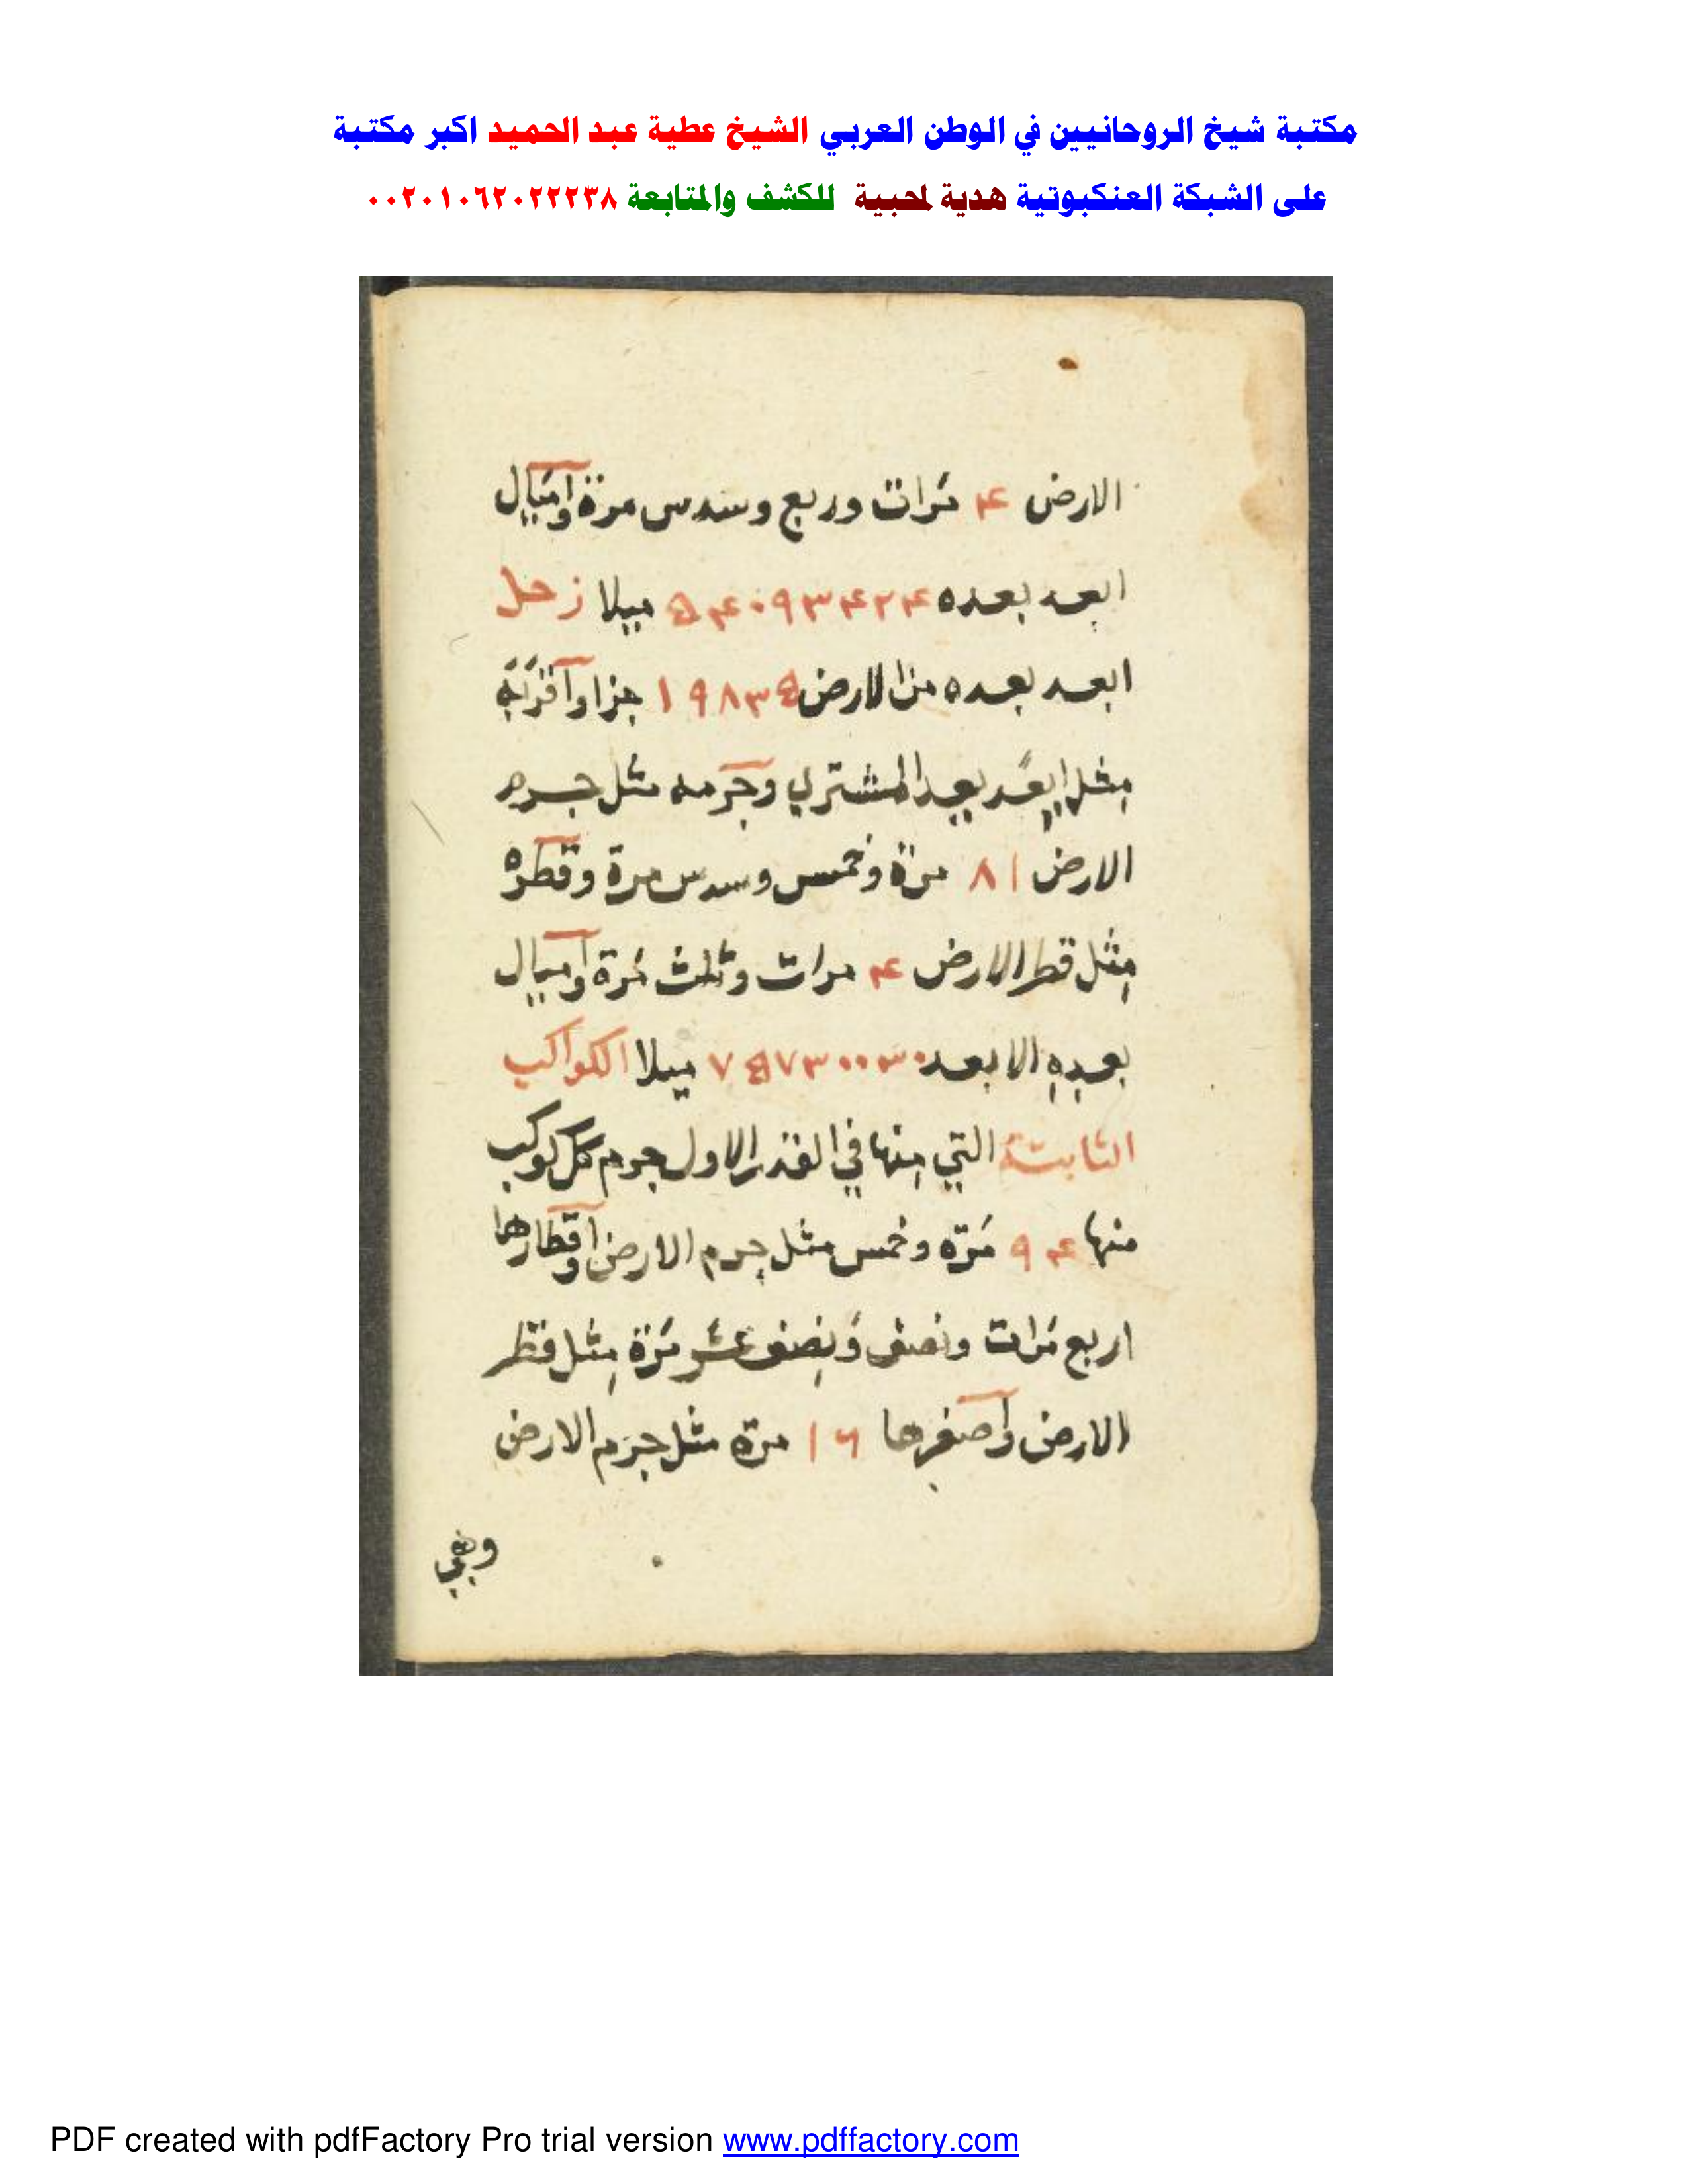 مكتبة شيخ الروحانيين في الوطن العربي الشيخ عطية عبد الحميد اكبر مكتبة
على الشبكة العنكبوتية هدية لمحبية للكشف والمتابعة ٠٠٢٠١٠٦٢٠٢٢٢٣٨
الارض ۴ مَرات وربع وسدس مرة واميال
ابعد بعده ۵۴۰۹۳۴۲۴ ميلا زحل
ابعد بعده من الارض ۱۹۸۳۵ جزا واقربه
مثل ابعد بعد المشتري وجرمه مثل جرم
الارض ۸۱ مرة وخمس وسدس مرة وقطره
مثل قطر الارض ۴ مرات وثلث مَرة واميال
بعده الابعد ۷۵۷۳۰۰۳۰ ميلا الكواكب
الثابتة التي منها في القدر الاول جرم كل كوكب
منها ۹۴ مَرّه وخمس مثل جرم الارض واقطارها
اربع مَرات ونصف وَنِصف عشر مَرّة مِثل قطر
الارض واصغرها ۱۶ مرّة مثل جرم الارض
وهي
PDF created with pdfFactory Pro trial version www.pdffactory.com